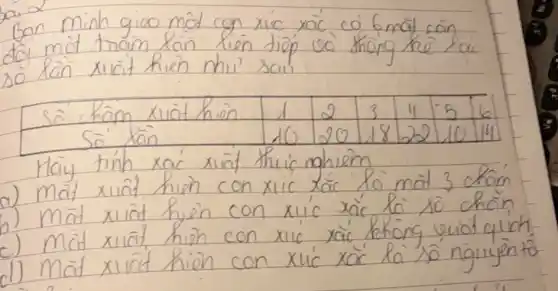 Bạn minh gieo một con xúc xắc có 6 mặt cân
đối một trăm lần liên tiếp và thống kê lại
số lần xuất hiện như sau
Số chấm xuất hiện 1 2 3 4 5 6
Số lần 10 20 18 22 10 14
Hãy tính xác xuất thực nghiệm
a) mặt xuất hiện con xúc xắc là mặt 3 chấm
b) mặt xuất hiện con xúc xắc là số chẵn
c) mặt xuất hiện con xúc xắc không vượt quá
d) mặt xuất hiện con xúc xắc là số nguyên tố